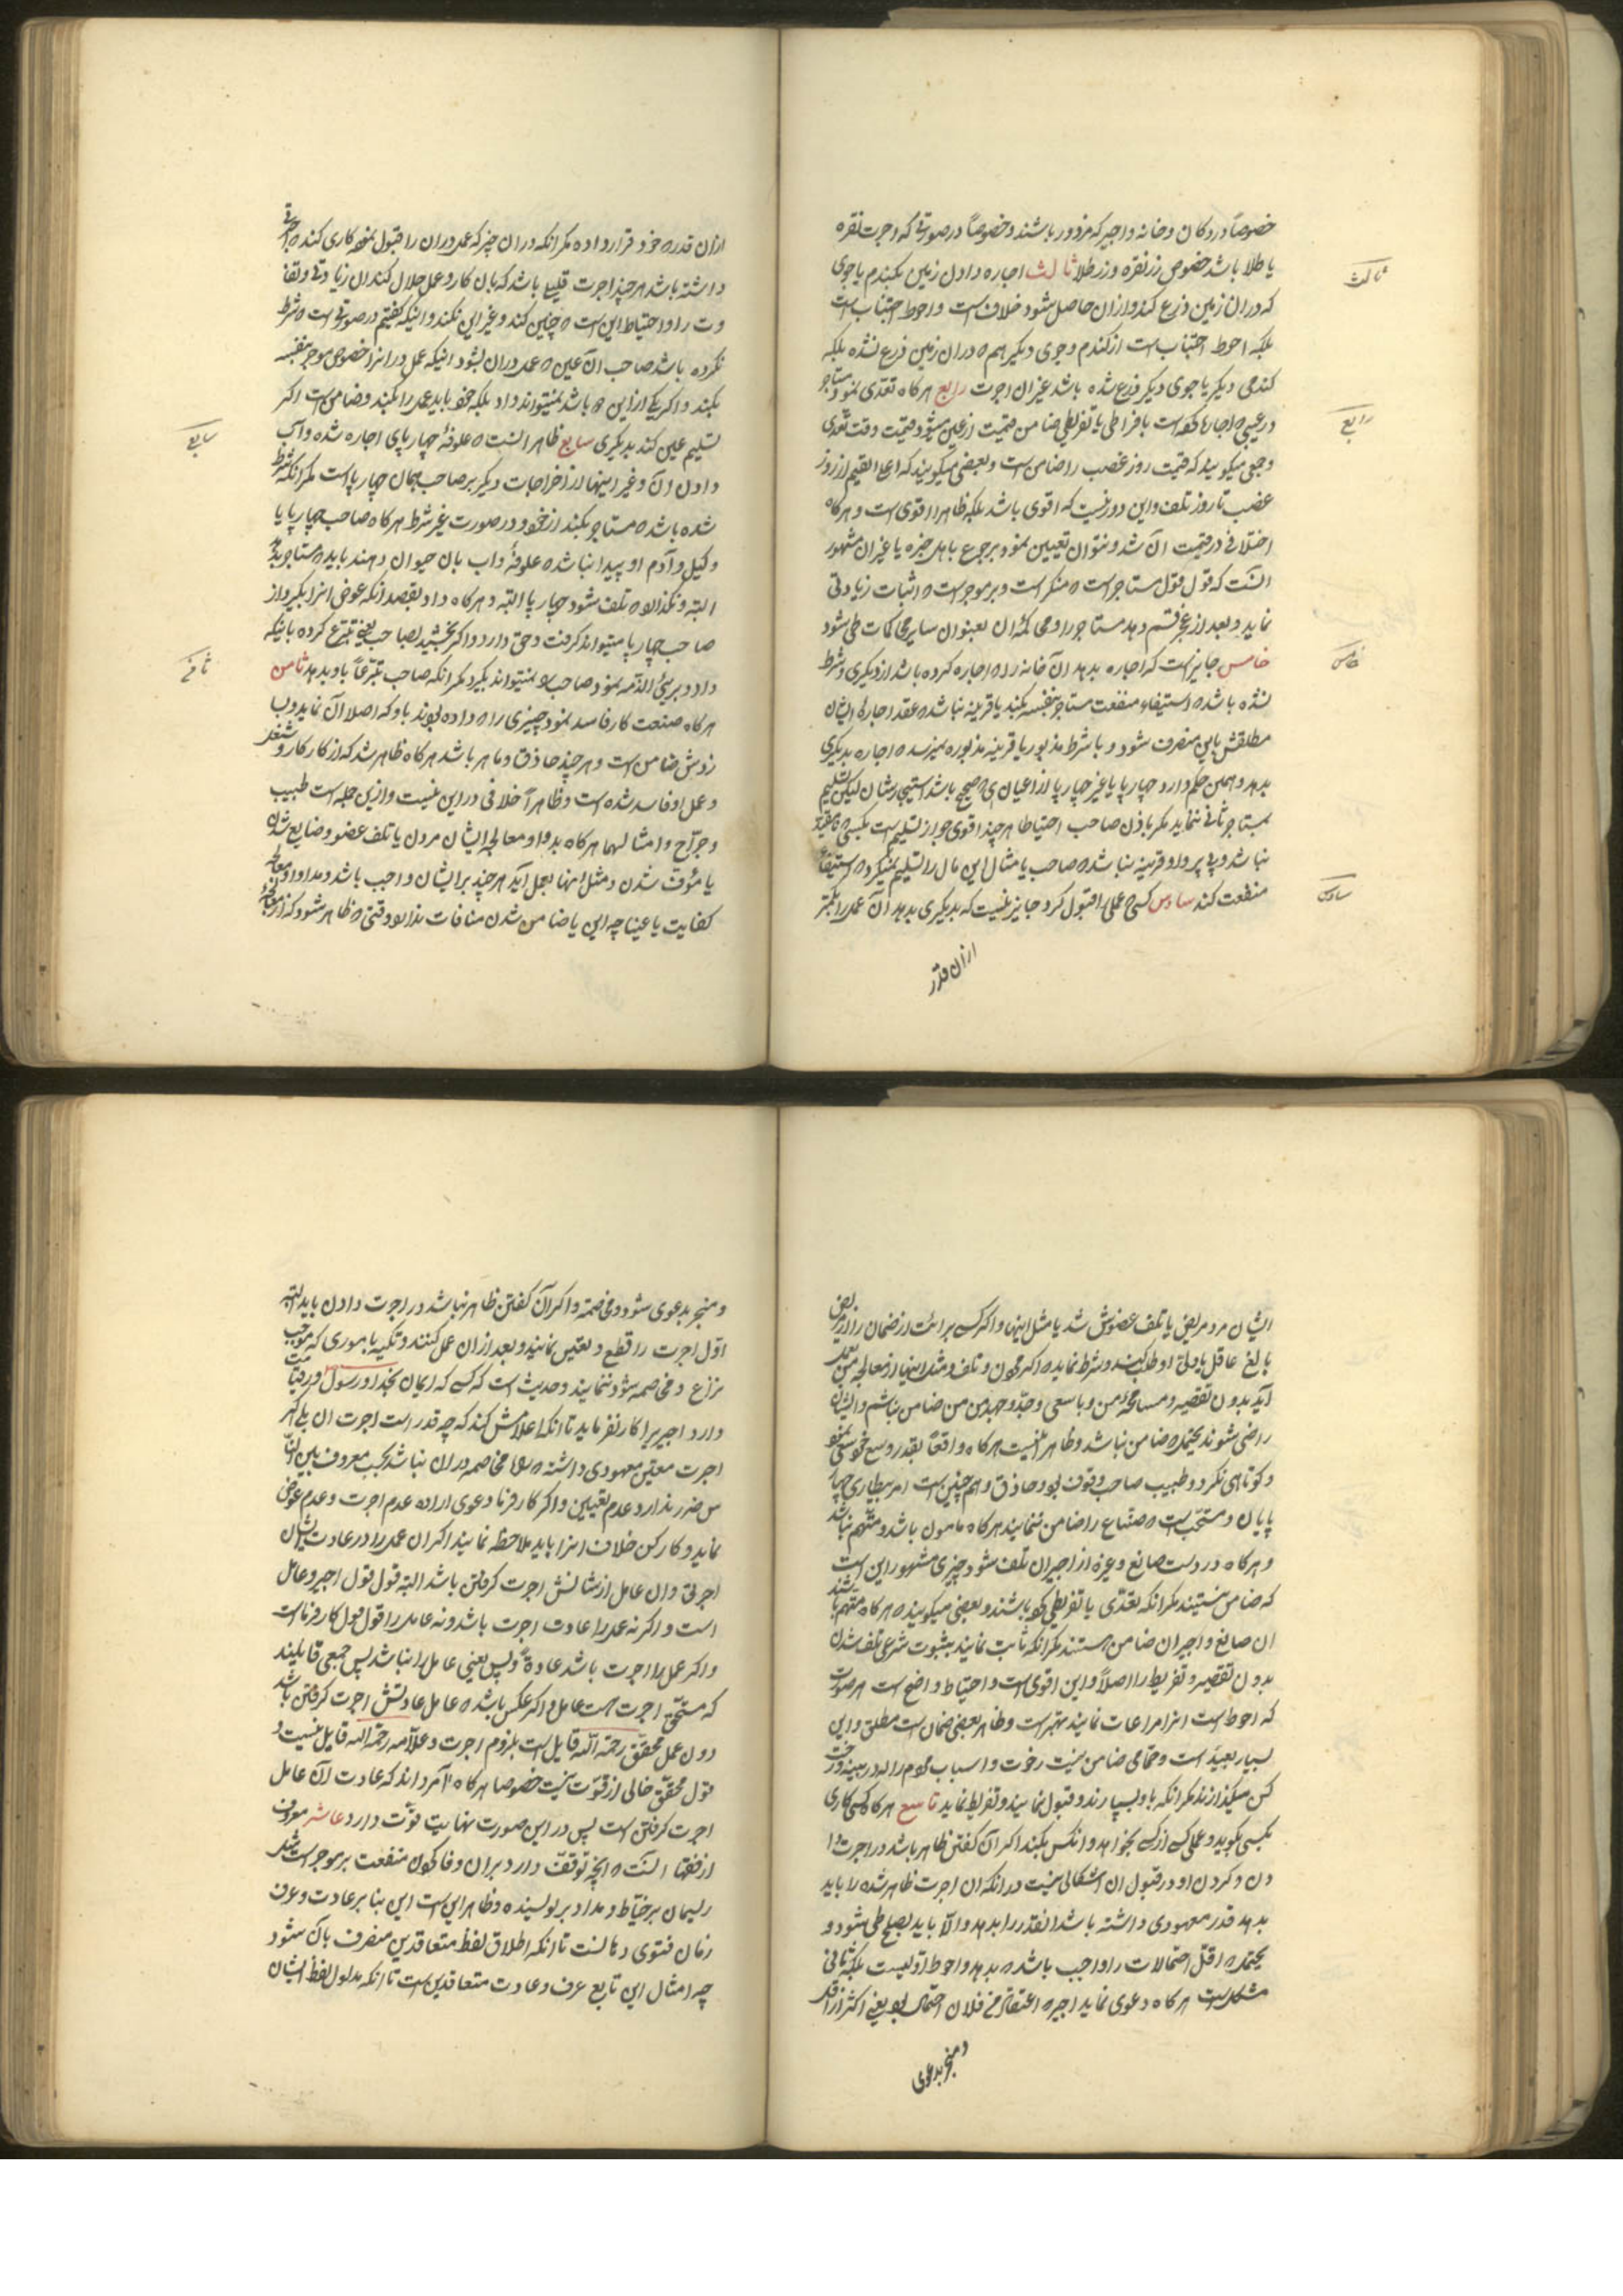 خصوصاً در دکان و خانه و اجیر که مزدور باشند و خصوصاً در صورتی که اجرت نقره
یا طلا باشد خصوص زر نقره و زر طلا ثالث اجاره دادن زمین بگندم یا جوی
ثالث
که در ان زمین زرع کند و از ان حاصل شود خلافست و احوط اجتناب است
بلکه احوط اجتناب است از گندم و جوی دیگر هم ه در ان زمین زرع نشده بلکه
گندمی دیگر یا جوی دیگر زرع شده باشد غیر ان اجرت رابع هرگاه تعدی نمود مستاجر
رابع
در عینی ه اجاره است بافراطی یا تفریطی ضامن قیمت ان عین میشود قیمت وقت تعدی
و جمعی میگویند که قیمت روز غصب را ضامن است و بعضی میگویند که اعلا القیم از روز
غصب تا روز تلف و این دور نیست که اقوی باشد بلکه ظاهرا اقوی است و هرگاه
اختلافی در قیمت آن شد و نتوان تعیین نمود برجوع باهل خبره یا غیر ان مشهور
انست که قول قول مستاجر است ه منکر است و بر موجر است ه اثبات زیادتی
نماید و بعد از عجز قسم دهد مستاجر را و محاکمه ان بعنوان سایر محاکمات طی شود
خامس جایز است که اجاره بدهد آن خانه را ه اجاره کرده باشد از دیگری و شرط
خامس
نشده باشد ه استیفاء منفعت مستاجر بنفسه بکند یا قرینه نباشد ه عقد اجاره ایشان
مطلقش باین منصرف شود و با شرط مذبور یا قرینه مذبوره نمیرسد ه اجاره بدیگری
بدهد و همین حکم دارد چهارپا یا غیر چهارپا از اعیان ه صحیح باشد استیجارشان لیکن تسلیم
بمستاجر ثانی ننماید مگر باذن صاحب احتیاطا هر چند اقوی جواز تسلیم است بکسی ه مقید
نباشد و بی پروا و قرینه نباشد ه صاحب یا مثال این مال را تسلیم نمیکرد ه استیفاء
منفعت کند سادس کسی ه عملی را قبول کرد جایز نیست که بدیگری بدهد آن عمل را بکمتر
سادس
از ان قدر
از ان قدر ه خود قرار داده مگر انکه در ان چیز که عمل در ان را قبول نموده کاری کند ه اجرتی
داشته باشد هر چند اجرت قلیلی باشد که بان کار و عمل حلال کند ان زیادتی و تفاوت
وت را و احتیاط این است ه چنین کند و غیر این نکند و اینکه گفتیم در صورتی است ه شرط
نکرده باشد صاحب ان عین ه عمل در ان بشود اینکه عمل در انرا خصوص موجر بنفسه
بکند و اگر یکی از این ه باشد نمیتواند داد بلکه خود باید عمل را بکند و ضامن است اگر
تسلیم عین کند بدیگری سابع ظاهر انست ه علوفه چهارپای اجاره شده و آب
سابع
دادن آن و غیر اینها از اخراجات دیگر بر صاحب همان چهارپا است مگر انکه شرط
شده باشد ه مستاجر بکند از خود و در صورت غیر شرط هرگاه صاحب چهارپا یا
وکیل و آدم او پیدا نباشد ه علوفه و اب بان حیوان دهند باید ه مستاجر بدهد
البته و نگذارد ه تلف شود چهارپا البته و هرگاه داد بقصد انکه عوض انرا بگیرد از
صاحب چهارپا میتواند گرفت و حق دارد و اگر بخشید بصاحب یعنی تبرع کرده باینکه
داد و بریئ الذمه نمود صاحب را نمیتواند بگیرد مگر انکه صاحب تبرعاً باو بدهد ثامن
ثامن
هرگاه صنعت کار فاسد نمود چیزی را ه داده بودند باو که اصلاح آن نماید و ب
زدش ضامن است و هر چند حاذق و ماهر باشد هرگاه ظاهر شد که از کار کار و شغل
و عمل او فاسد شده است و ظاهراً خلافی در این نیست و ازین جمله است طبیب
و جراح و امثال لهما هرگاه بدوا و معالجه ایشان مردن یا تلف عضو و ضایع شدن
یا مؤف شدن و مثل اینها بعمل آید هر چند بر ایشان واجب باشد و مداوا و معالجه
کفایت یا عینا چه این یا ضامن شدن منافات ندارد وقتی ه ظاهر شود که از معالجه
ایشان مرد مریض یا تلف عضوش شد یا مثل اینها و اگر کسی برائت از ضمان را از مریض
بالغ عاقل یا ولی او طلب کند و شرط نماید ه اگر مردن و تلف و مثل اینها از معالجه من بعمل
آید بدون تقصیر و مسامحه من و با سعی و جد و جهد من من ضامن نباشم و ایشان
راضی شوند بحتمل ه ضامن نباشد و ظاهر نیست هرگاه واقعاً بقدر وسع خود سعی نمود
و کوتاهی نکرد و طبیب صاحب وقوف بود و حاذق و هم چنین است امر بیطاری چهار
پایان و مستحب است ه صناع را ضامن ننمایند هرگاه مامون باشد و متهم نباشد
و هرگاه در دست صانع و غیره از اجیران تلف شود چیزی مشهور این است
که ضامن نیستند مگر انکه تعدی یا تفریطی کرده باشند و بعضی میگویند ه هرگاه متهم باشند
ان صانع و اجیران ضامن هستند مگر انکه ثابت نمایند بثبوت شرعی تلف شدن
بدون تقصیر و تفریط را اصلاً و این اقوی است و احتیاط واضح است هر صورت
که احوط است انرا مراعات نمایند بهتر است و ظاهر بعضی ضمان است مطلق و این
بسیار بعید است و حمامی ضامن نیست رخوت و اسباب مردم را ه در بینه و رخت
کن میگذارند مگر انکه باو بسپارند و قبول نمایند و تفریط نماید تاسع هرگاه کسی کاری
بکسی بگوید و عملی از کسی بخواهد و انکس بکند اگر آن گفتن ظاهر باشد در اجرت دا
دن و کردن او در قبول ان اشکالی نیست در انکه ان اجرت ظاهر شده را باید
بدهد قدر معهودی داشته باشد انقدر را بدهد و الا باید بصلح طی شود و
یحتمل ه اقل احتمالات را واجب باشد ه بدهد و احوط اولیست بلکه ثانی
مشکل است هرگاه دعوی نماید اجیر ه اعتقاد من فلان احتمال بود یعنی اکثر از اقل
و منجر بدعوی
و منجر بدعوی شود و مخاصمه و اگر آن گفتن ظاهر نباشد در اجرت دادن باید البته
اول اجرت را قطع و تعیین نمایند و بعد از ان عمل کنند و تکیه باموری که موجب
نزاع و مخاصمه شود ننمایند و حدیث است که کسی که ایمان بخدا و رسول و قیامت
دارد اجیر را کار نفرماید تا انکه اعلامش کند که چه قدر است اجرت ان بلی اگر
اجرت معین معهودی داشته ه مخاصمه در ان نباشد بحسب معروف بین الناس
س ضرر ندارد عدم تعیین و اگر کار فرما دعوی اراده عدم اجرت و عدم عوض
نماید و کارکن خلاف انرا باید ملاحظه نمایند اگر ان عمل را در عادت ایشان
اجرتی و ان عامل از شانش اجرت گرفتن باشد البته قول قول اجیر و عامل
است و اگر نه عمل را عادت اجرت باشد و نه عامل را قول قول کار فرماست
و اگر عمل را اجرت باشد عادةً و بس یعنی عامل را نباشد پس جمعی قایلند
که مستحق اجرت است عامل و اگر عکس باشد ه عامل عادتش اجرت گرفتن باشد
دون عمل محقق رحمة الله قایل است بلزوم اجرت و علامه رحمة الله قایل نیست و
قول محقق خالی از قوت نیست خصوصا هرگاه آمر داند که عادت آن عامل
اجرت گرفتن است پس در این صورت نهایت قوت دارد عاشر معروف
از فقها انست ه انچه توقف دارد بران وفا کردن منفعت بر موجر است مثل
ریسمان بر خیاط و مداد بر نویسنده و ظاهر این است این بنا بر عادت و عرف
زمان فتوی دهانست تا انکه اطلاق لفظ متعاقدین منصرف بان شود
چه امثال این تابع عرف و عادت متعاقدین است تا انکه مدلول لفظ ایشان